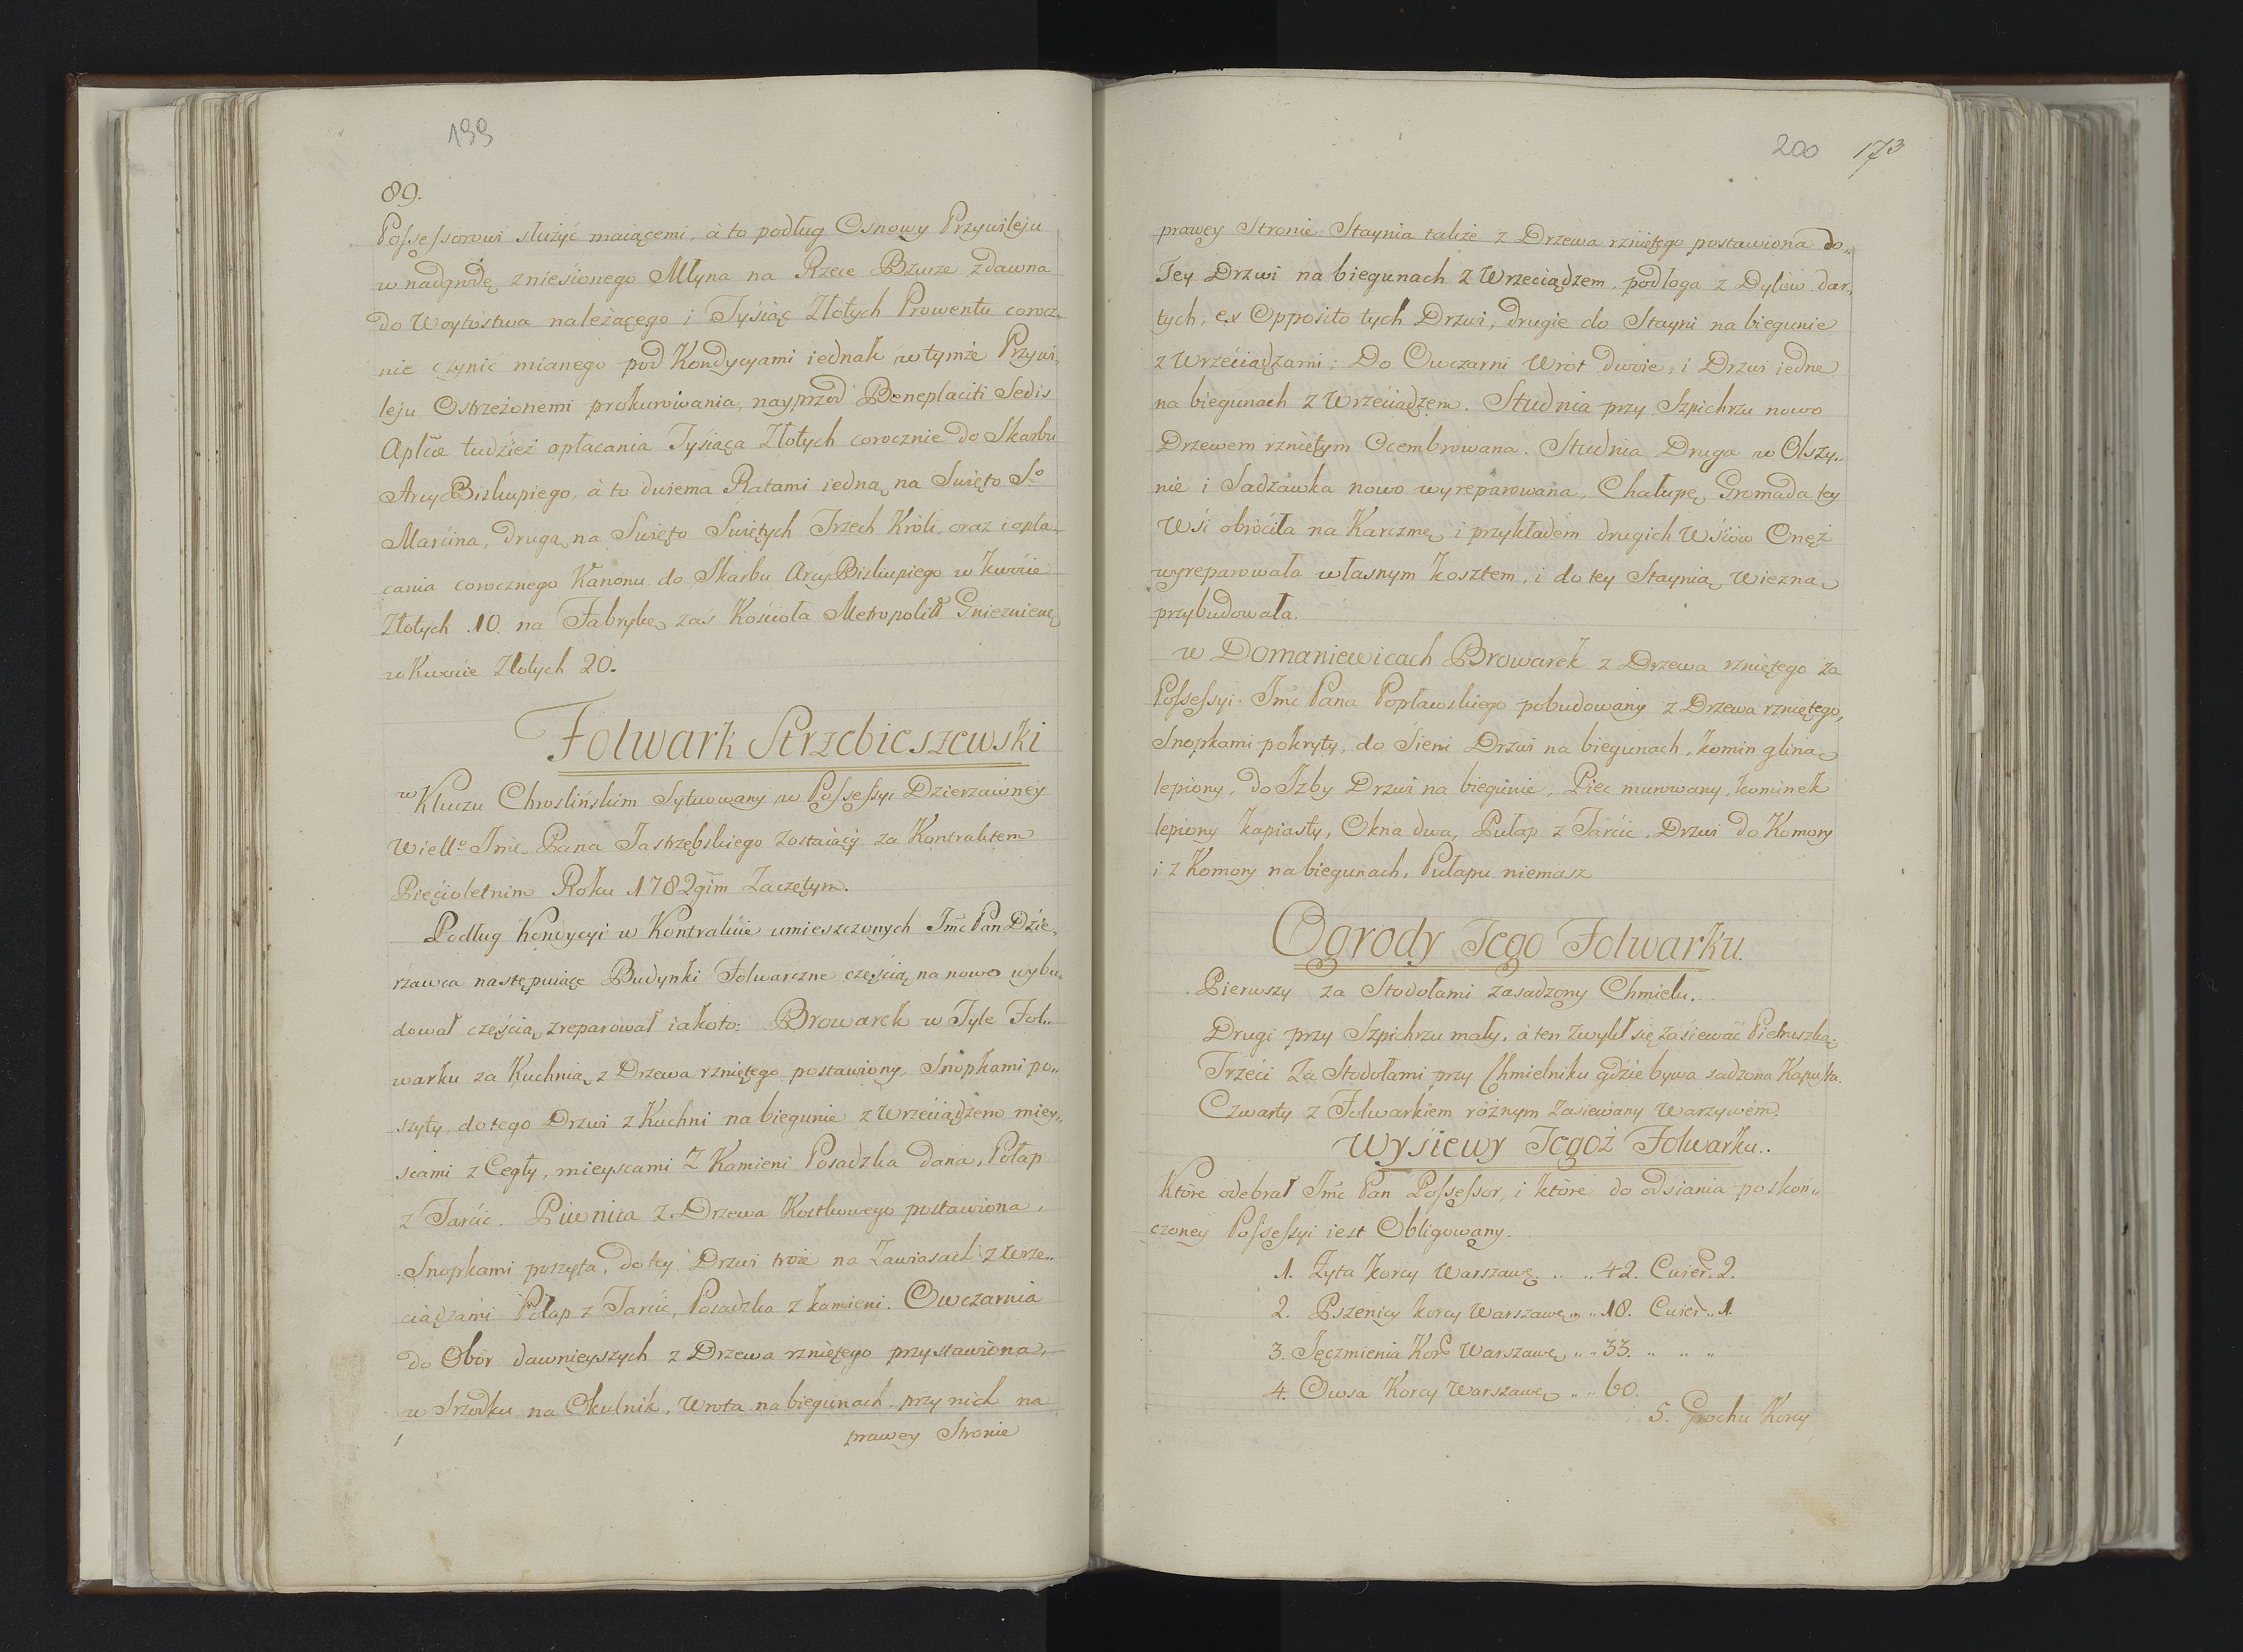 199
89.
Possessorowi służyć maiącemi, à to podług Osnowy Przywileju
w nadgrodę zniesionego Młyna na Rzece Bzurze zdawna
do Woytostwa należącego i Tysiąc Złotych Prowentu corocz„
nie czynić mianego pod Kondycyami iednak w tymże Przywi„
leju Ostrzeżonemi prokurowania, nayprzod Beneplaciti Sedis
Aplicæ tudźież opłacania Tysiąca Złotych corocznie do Skarbu
ArcyBiskupiego, à to dwiema Ratami iedną na Swięto So
Marcina, drugą na Swięto Swiętych Trzech Króli oraz i opła„
cania corocznego Kanonu do Skarbu ArcyBiskupiego w kwoćie
Złotych 10. na Fabrykę zaś Kościoła Metropolit Gnieznienę
w Kwoćie Złotych 20.
Folwark Strzebieszewski
w Kluczu Chroslińskim Sytuowany w Possessyi Dzierzawney
Wiello Jmc. Pana Jastrzębskiego zostaiący za Kontraktem
Pięćioletnim Roku 1782gim Zaczętym.
Podług Kondycyi w Kontrakćie umieszczonych Jmc Pan Dźie„
rzawca następuiące Budynki Folwarczne częścią na nowo wybu„
dował częścią zreparował iakoto: Browarek w Tyle Fol„
warku za Kuchnią z Drzewa rzniętego postawiony Snopkami po„
szyty, do tego Drzwi z Kuchni na biegunie z Wrzećiądzem miey„
scami z Cegły, mieyscami z Kamieni Posadzka dana, Połap
z Tarćic. Piwnica z Drzewa Kostkowego postawiona,
Snopkami poszyta, do tey Drzwi troie na Zawiasach z Wrze„
ciądzami Połap z Tarćic, Posadzka z kamieni. Owczarnia
do Obór dawnieyszych z Drzewa rzniętego przystawiona,
w Srzodku na Okulnik, Wrota na biegunach przy nich na
prawey Stronie
200 173
prawey Stronie Staynia także z Drzewa rzniętego postawiona do„
Tey Drzwi na biegunach z Wrzeciądzem, podłoga z Dylów dar„
tych, ex Opposito tych Drzwi, drugie do Stayni na biegunie
z Wrzećiądzami; Do Owczarni Wrót dwoie, i Drzwi iedne
na biegunach z Wrzećiądzem. Studnia przy Szpichrzu nowo
Drzewem rzniętym Ocembrowana. Studnia Druga w Olszy„
nie i Sadzawka nowo wyreparowana, Chałupę Gromada tey
Wśi obróciła na Karczmę i przykładem drugich Wśiow Onęż
wyreparowała własnym kosztem, i do tey Staynią Wiezną
przybudowała.
w Domaniewicach Browarek z Drzewa rzniętego za
Possessyi Jmc Pana Popławskiego pobudowany z Drzewa rzniętego,
Snopkami pokryty, do Śieni Drzwi na biegunach, komin gliną
lepiony, do Izby Drzwi na biegunie, Piec murowany, kominek
lepiony kapiasty, Okna dwa, Pułap z Tarćic, Drzwi do Komory
i z Komory na biegunach, Pułapu niemasz
Ogrody Tego Folwarku.
Pierwszy za Stodołami zasadzony Chmielu.
Drugi przy Szpichrzu mały, à ten zwykł się zasiewać Pietruszką.
Trzeći za Stodołami przy Chmielniku gdźie bywa sadzona Kapusta.
Czwarty z Folwarkiem różnym Zasiewany Warzywem.
Wysiewy Tegoż Folwarku..
Które odebrał Jmc Pan Possessor, i które do odsiania po skoń„
czoney Possessyi iest Obligowany.
1. Żyta korcy Warszawę „ „ 42. Cwierc. 2.
2. Pszenicy korcy Warszawę „ „ 18. Cwierc „ 1.
3. Jęczmienia Korc Warszawę „ „ 33. „ „ „
4. Owsa Korcy Warszawę „ „ 60.
5. Grochu Korcy